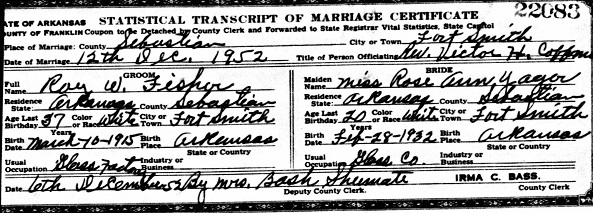 22083
ATE OF ARKANSAS STATISTICAL TRANSCRIPT OF MARRIAGE CERTIFICATE
OUNTY OF FRANKLIN Coupon to be Detached by County Clerk and Forwarded to State Registrar Vital Statistics, State Capitol
Place of Marriage: County Sebastian City or Town Fort Smith
Date of Marriage 12th Dec. 1952 Title of Person Officiating Rev. Victor H.
GROOM BRIDE
Full Name Ray W. Fisher Maiden Name Miss Rose Ann Yager
Residence State: Arkansas County Sebastian Residence State: Arkansas County Sebastian
Age Last Birthday 37 Color or Race White City or Town Fort Smith Age Last Birthday 20 Color or Race White City or Town Fort Smith
Years Years
Birth Date March-10-1915 Birth Place Arkansas Birth Date Feb-28-1932 Birth Place Arkansas
State or Country State or Country
Usual Occupation Glass Industry or Business Usual Occupation Glass Co. Industry or Business
Date 6th December 52 By Mrs. Bash Shumate IRMA C. BASS.
Deputy County Clerk. County Clerk